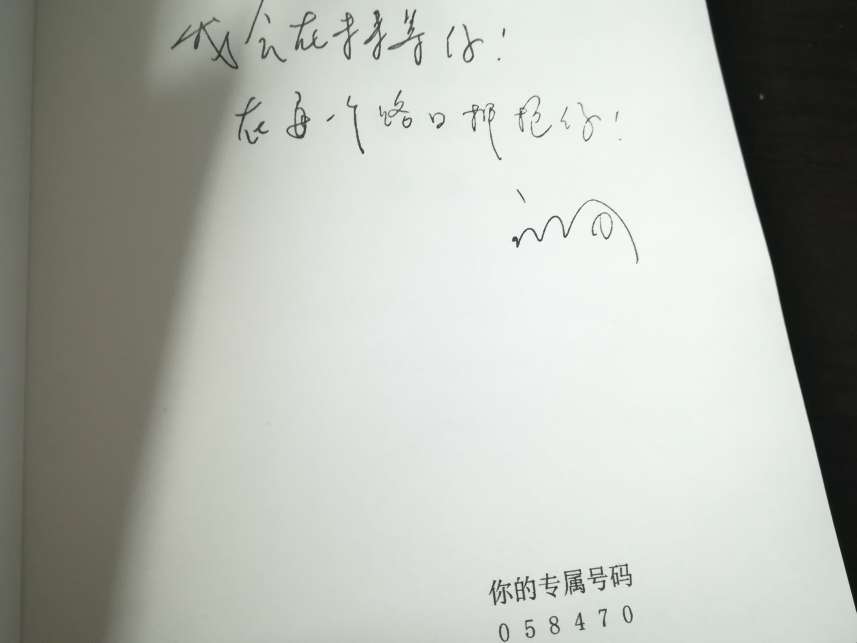 我会在未来等你！
在每一个路口拥抱你！
你的专属号码
058470